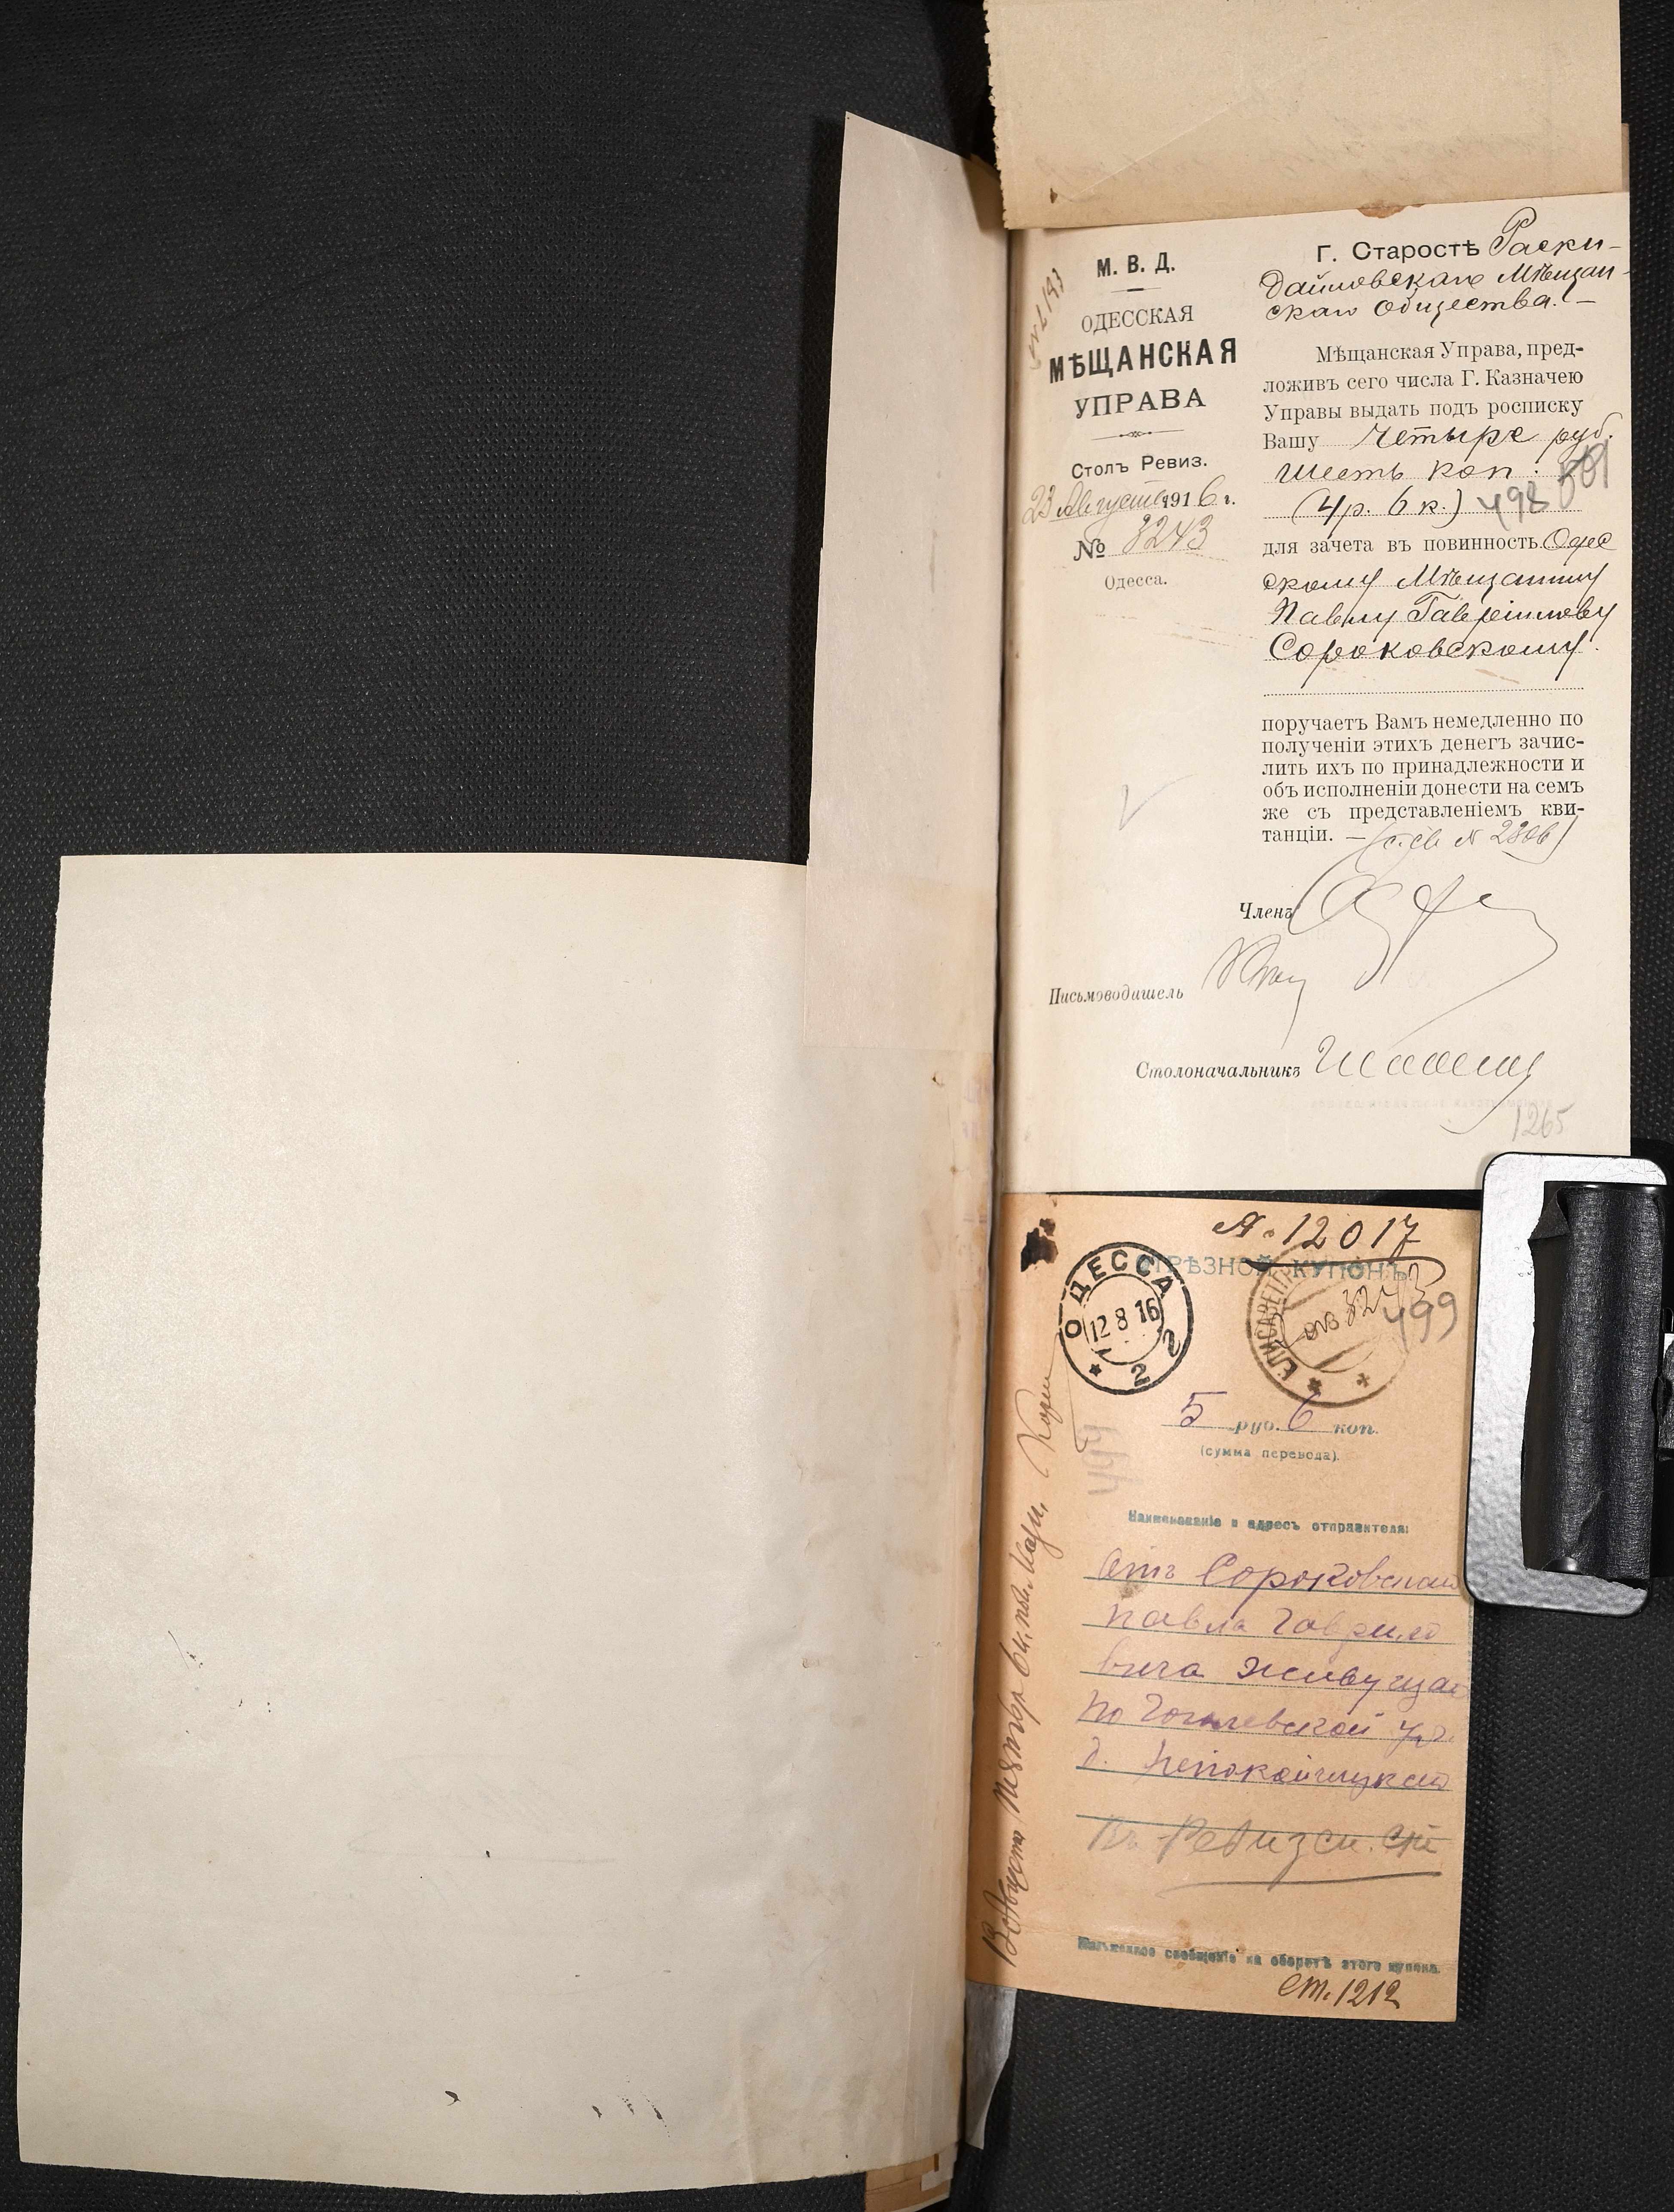 М. В. Д.
ОДЕССКАЯ
МѢЩАНСКАЯ
УПРАВА
Столъ Ревиз.
23 Августа 1916 г.
№ 8243
Одесса.
Г. Старостѣ Раски-
дайловскаго Мѣщан-
скаго Общества. —
Мѣщанская Управа, пред-
ложивъ сего числа Г. Казначею
Управы выдать подъ росписку
Вашу Четыре руб.
шесть коп.
501
(4 р. 6 к.) 498
для зачета въ повинность Одес
скому Мѣщанину
Павлу Гаврiилову
Сороковскому.
поручаетъ Вамъ немедленно по
полученіи этихъ денегъ зачис-
лить ихъ по принадлежности и
объ исполненіи донести на семъ
же съ представленіемъ кви-
танціи. —
Членъ
Письмоводитель
Столоначальникъ
1265
12017
ОТРѢЗНОЙ КУПОНЪ
ОДЕССА
12 8 16
2
ЕЛИСАВЕТГР
8243
499
5 руб. 6 коп.
(сумма перевода).
Наименованіе и адресъ отправителя:
Отъ Сороковскаго
Павла Гаврило
вича живущаго
по Гоголевской ул.
д.
Въ Ревизск. ст
Письменное сообщеніе на оборотѣ этого купона.
ст. 1212
13 Августа Пять р 6 к. пол. Казн.